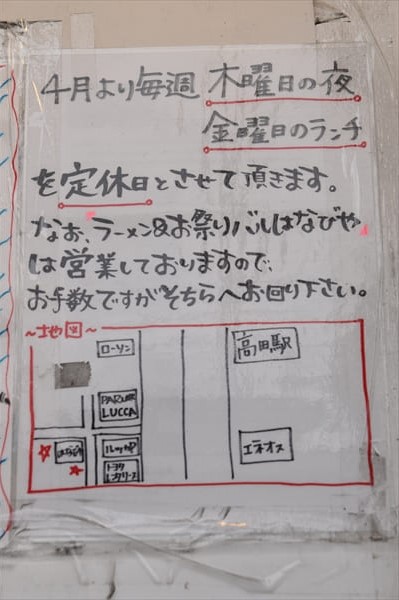 4月より毎週 木曜日の夜
金曜日のランチ
を定休日とさせて頂きます。
なお、ラーメン&お祭りバルはなびや
は営業しておりますので、
お手数ですがそちらへお回り下さい。
~地図~
ローソン
高田駅
PARLOR
LUCCA
はなびや
エネオス
トヨタ
レンタリース